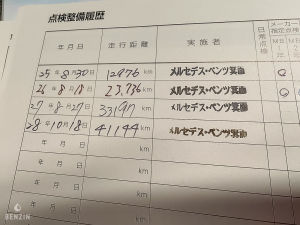 点検整備履歴
年月日 走行距離 実施者 日常点検 メーカー指定点検
25年8月30日 12976km メルセデス・ベンツ箕面
26年8月18日 23,736km メルセデス・ベンツ箕面
27年8月27日 33197km メルセデス・ベンツ箕面
28年10月18日 41144km メルセデス・ベンツ箕面
年月日 km
年月日 km
年月日 km
年月日
BENZIN